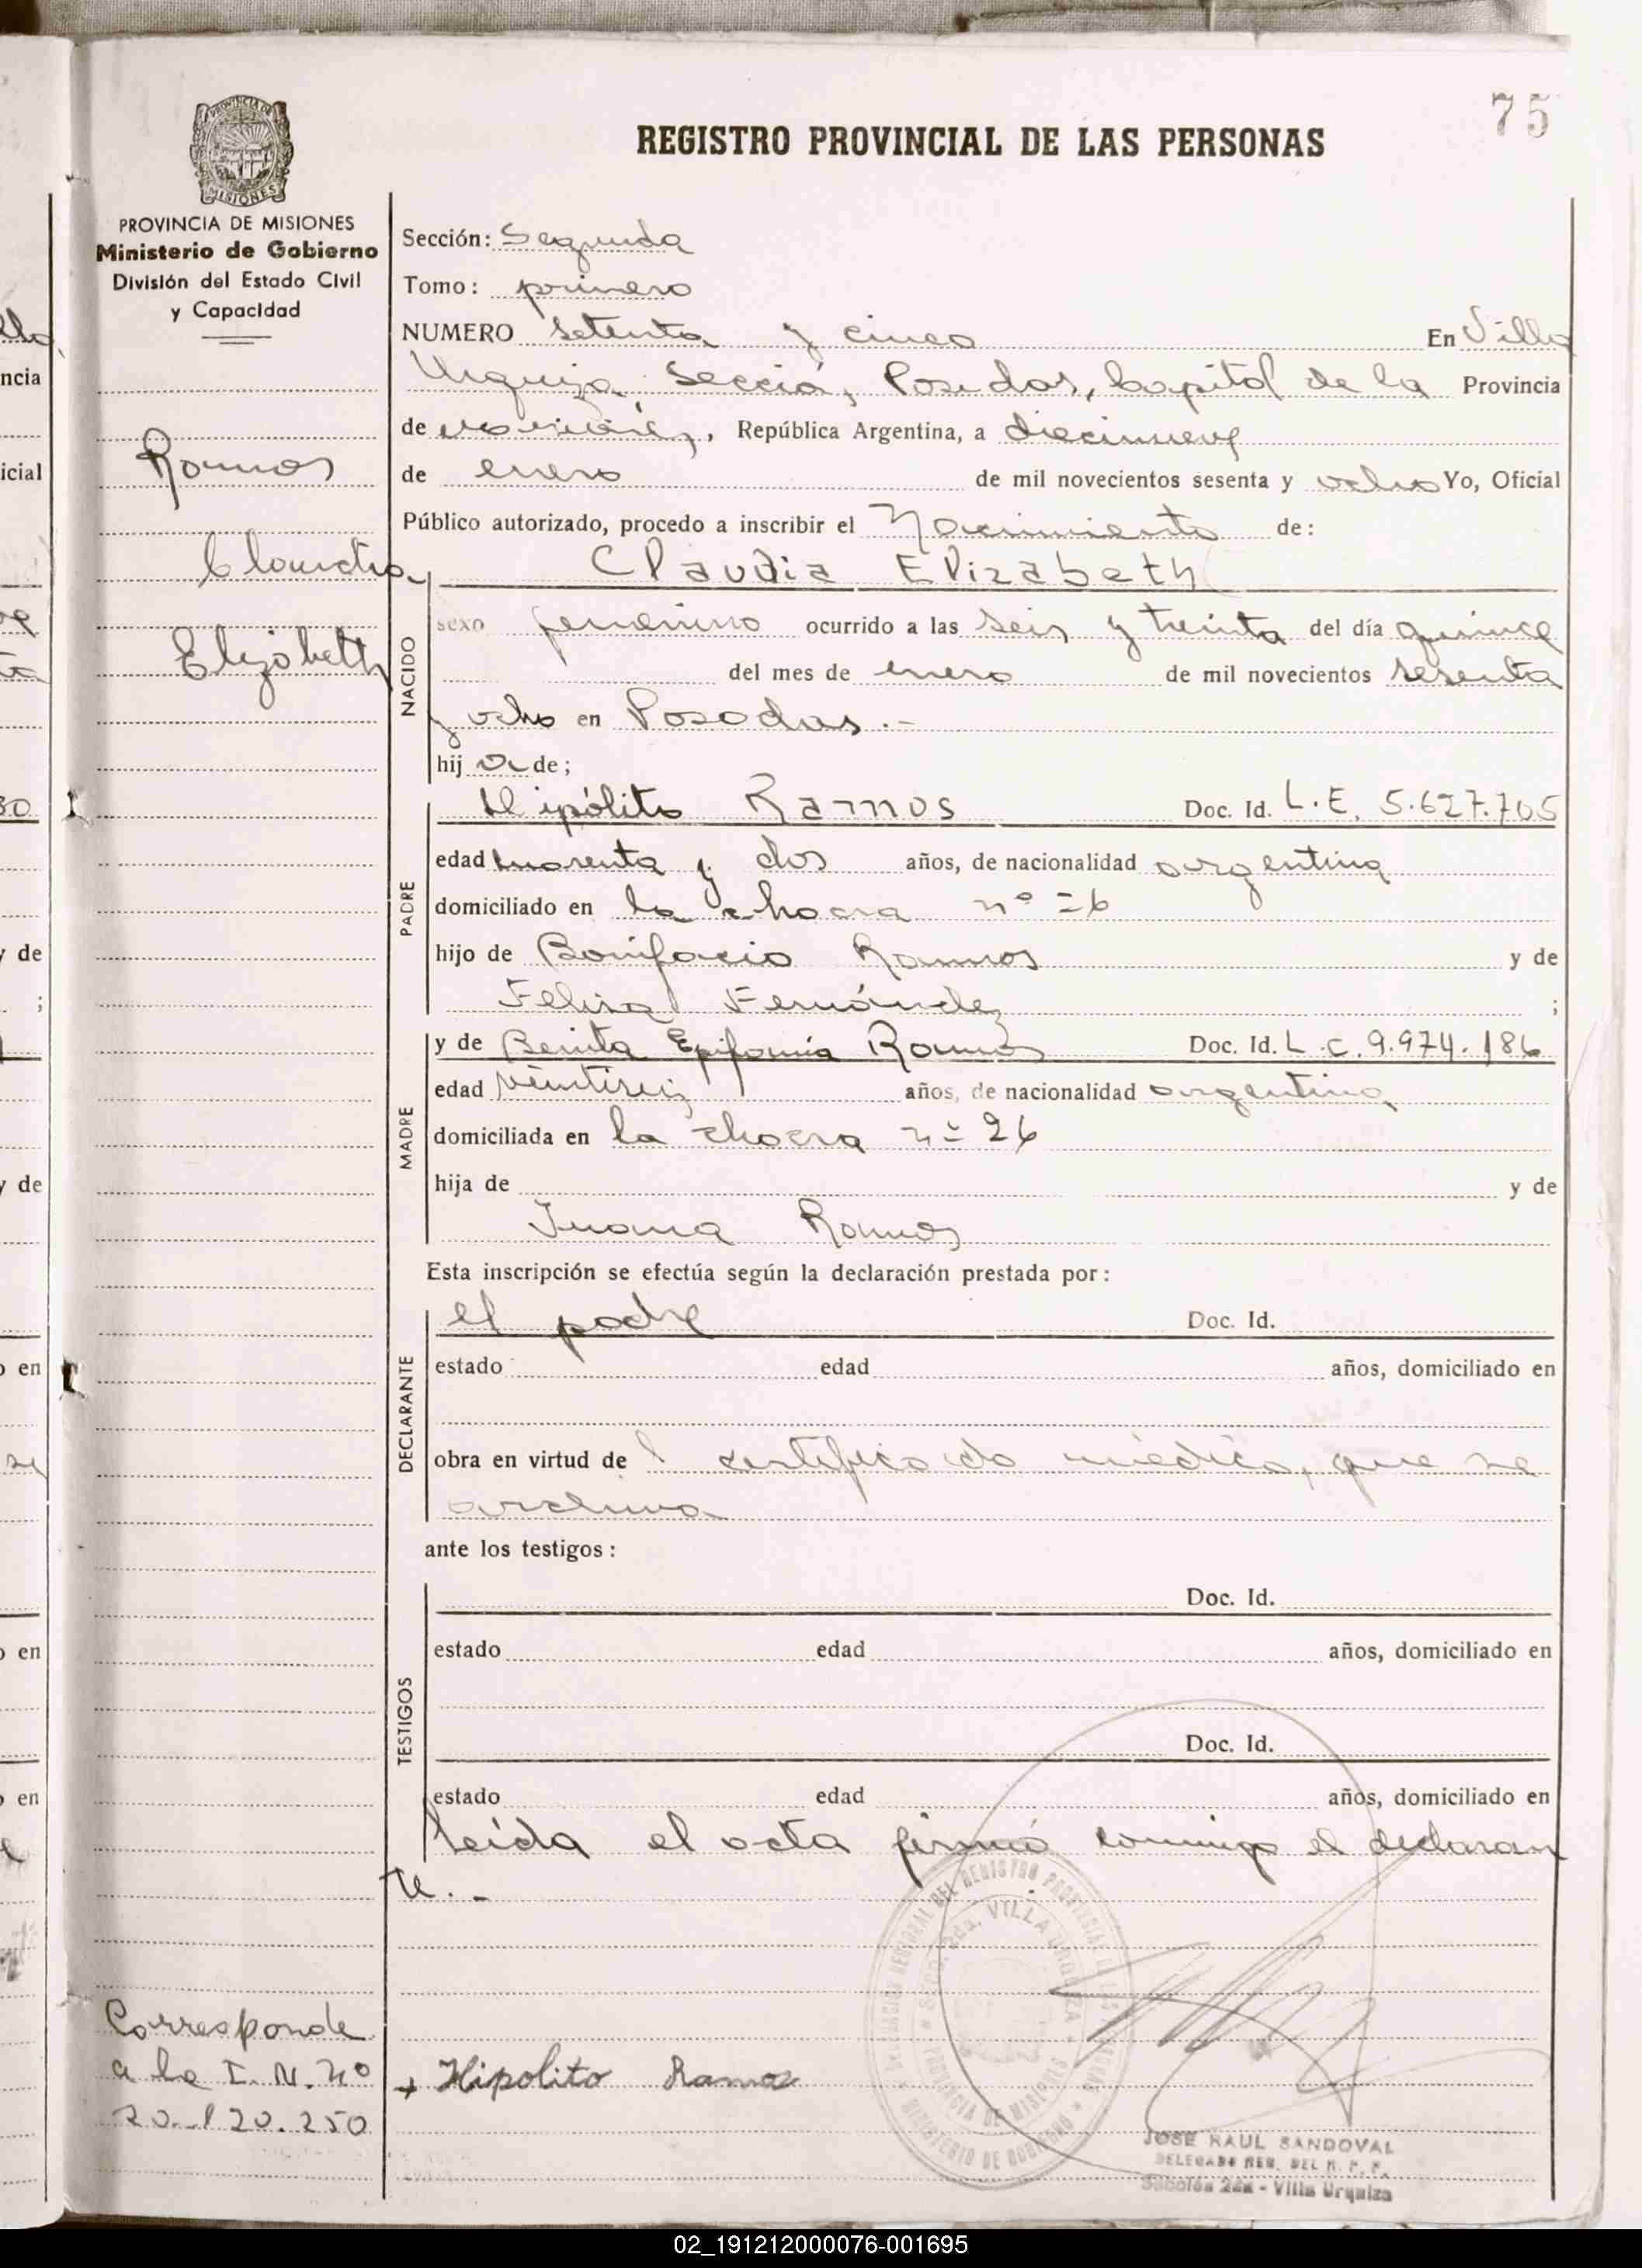 75
REGISTRO PROVINCIAL DE LAS PERSONAS
PROVINCIA DE MISIONES
MISIONES
PROVINCIA DE MISIONES
Ministerio de Gobierno
División del Estado Civil
y Capacidad
Ramos
Claudia
Elizabeth
Sección: Segunda
Tomo: primero
NUMERO setenta y cinco En Villa
Urquiza Sección, Posadas, Capital de la Provincia
de Misiones, República Argentina, a diecinueve
de enero de mil novecientos sesenta y ocho Yo, Oficial
Público autorizado, procedo a inscribir el Nacimiento de:
Claudia Elizabeth
NACIDO
sexo femenino ocurrido a las seis y treinta del día quince
del mes de enero de mil novecientos sesenta
y ocho en Posadas.-
hij a de;
PADRE
Hipólito Ramos Doc. Id. L.E. 5.627.705
edad cuarenta y dos años, de nacionalidad argentina
domiciliado en la chacra nº 26
hijo de Bonifacio Ramos y de
Felisa Fernández ;
MADRE
y de Benita Epifania Ramos Doc. Id. L.C. 9.974.186
edad veintiseis años, de nacionalidad argentina
domiciliada en la chacra nº 26
hija de y de
Juana Ramos
Esta inscripción se efectúa según la declaración prestada por:
DECLARANTE
el padre Doc. Id.
estado edad años, domiciliado en
obra en virtud de l certificado médico, que se
archiva
ante los testigos:
TESTIGOS
Doc. Id.
estado edad años, domiciliado en
Doc. Id.
estado edad años, domiciliado en
Leída el acta firmó conmigo el declaran
te.-
Corresponde
a la I. N. Nº
20.120.250
+ Hipolito Ramos
DELEGACION REGIONAL DEL REGISTRO PROVINCIAL DE LAS PERSONAS
SECC. 2da. VILLA URQUIZA
PROVINCIA DE MISIONES
MINISTERIO DE GOBIERNO
JOSE RAUL SANDOVAL
DELEGADO REG. DEL R. P. P.
Sección 2da - Villa Urquiza
ncia
icial
y de
;
y de
en
en
en
02_191212000076-001695